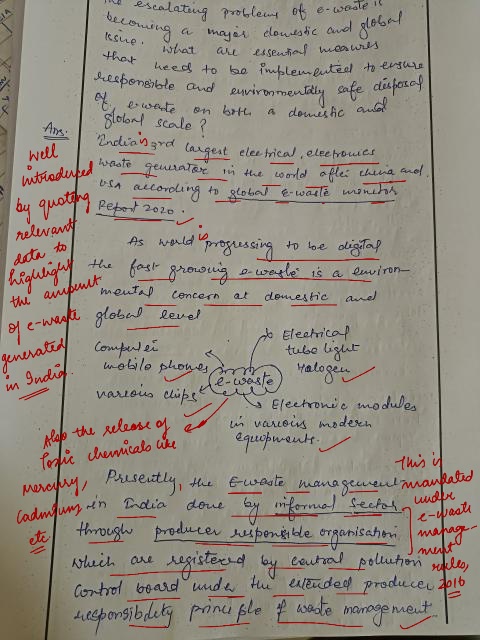 the escalating problems of e-waste is
becoming a major domestic and global
issue. What are essential measures
that needs to be implemented to ensure
responsible and environmentally safe disposal
of e-waste on both a domestic and
global scale?
Ans.
India is 3rd largest electrical, electronics
waste generator in the world after China and
USA according to global e-waste monitor
Report 2020.
well
introduced
by quoting
relevant
data to
highlight
the amount
of e-waste
generated
in India.
As world is progressing to be digital
the fast growing e-waste is a environ-
mental concern at domestic and
global level
Computer
mobile phones
various chips
e-waste
Electrical
tube light
Halogen
Electronic modules
in various modern
equipments.
Also the release of
Toxic chemicals like
Mercury,
Cadmium
etc
Presently, the E-waste management
in India done by informal Sector
through producer responsible organisation
which are registered by central pollution
control board under the extended producer
responsibility principle of waste management.
This is
mandated
under
e-waste
manage-
ment
rules,
2016